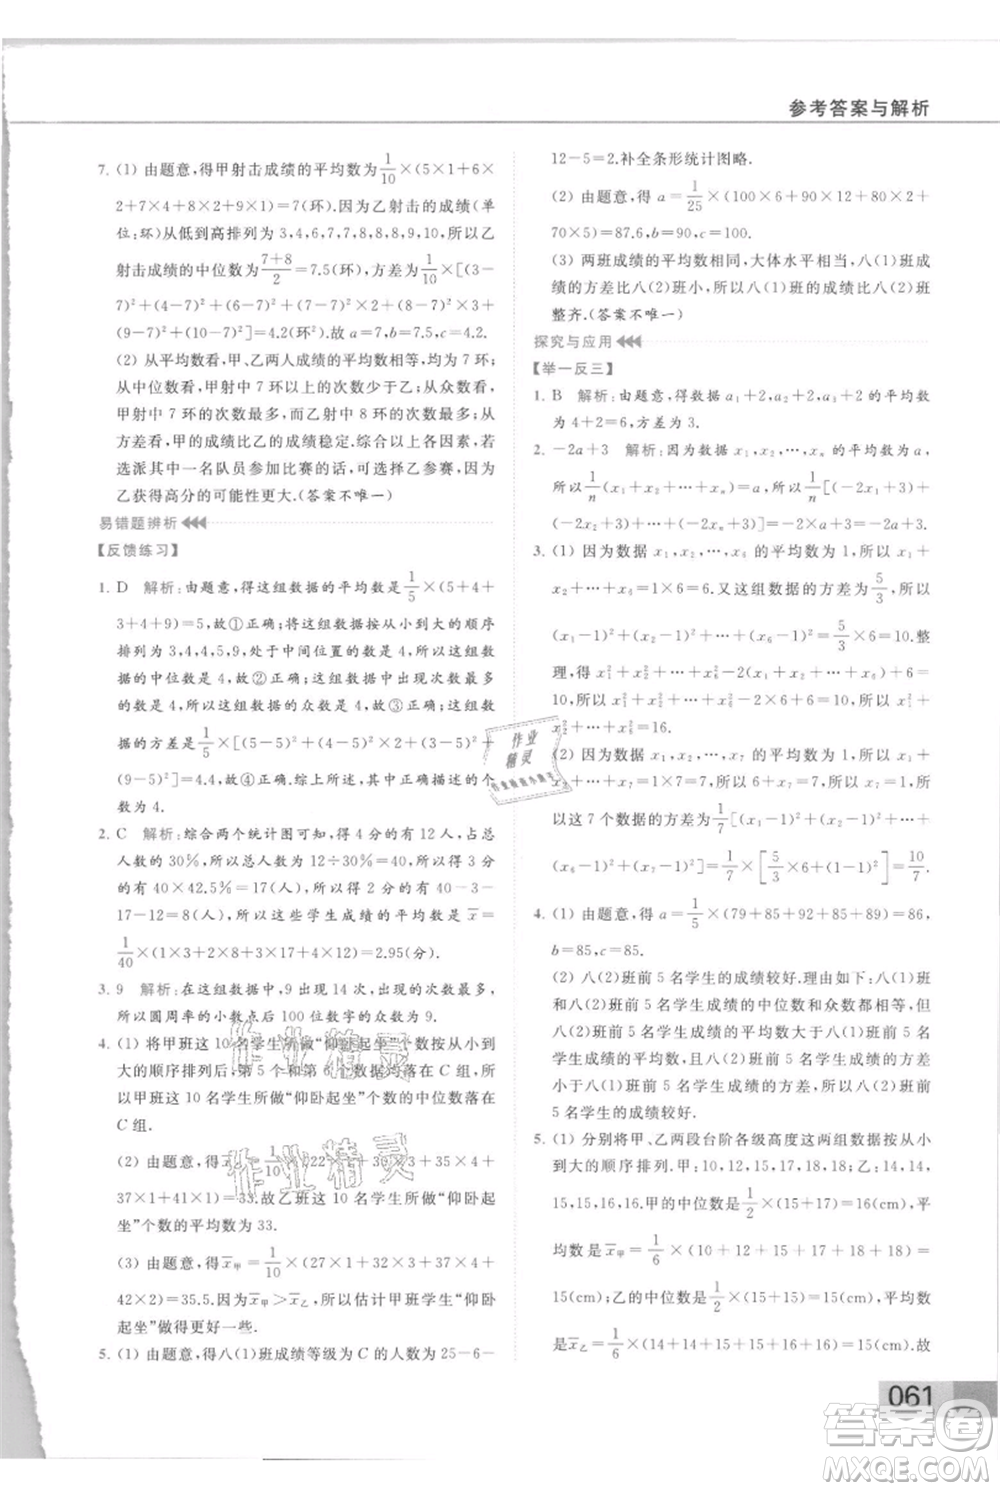 参考答案与解析
7. (1) 由题意,得甲射击成绩的平均数为1/10×(5×1+6×
2+7×4+8×2+9×1)=7(环).因为乙射击的成绩(单
位:环)从低到高排列为 3,4,6,7,7,8,8,8,9,10,所以乙
射击成绩的中位数为(7+8)/2=7.5(环),方差为1/10×[(3-
7)²+(4-7)²+(6-7)²+2×(7-7)²+3×(8-7)²+
(9-7)²+(10-7)²]=4.2(环²).故 a=7,b=7.5,c=4.2.
(2) 从平均数看,甲、乙两人成绩的平均数相等,均为 7 环;
从中位数看,乙射中 7 环以上的次数多于甲;从众数看,
甲射中 7 环的次数最多,而乙射中 8 环的次数最多;从
方差看,甲的成绩比乙的成绩稳定.综合以上各因素,若
选派其中一名队员参加比赛的话,可选择乙参赛,因为
乙获得高分的可能性更大.(答案不唯一)
易错题辨析
【反馈练习】
1. D 解析:由题意,得这组数据的平均数是1/5×(5+4+
3+4+9)=5,故①正确;这组数据按从小到大的顺序
排列为 3,4,4,5,9,处于中间位置的数是 4,所以这组数
据的中位数是 4,故②正确;这组数据的众数是 4,故③正确;这组数
据的方差是1/5×[(5-5)²+(4-5)²+(3-5)²+(4-5)²+
(9-5)²]=4.4,故④错误.综上所述,平均数为 5,方差不为 4.
2. C 解析:综合两个统计图可知,得 4 分的有 12 人,占总
人数的 30%,所以总人数为 12÷30%=40,所以得 3 分
的有 40×42.5%=17(人),所以得 2 分的有 40-3-
17-12=8(人),所以这些学生成绩的平均数 x̄=
1/40×(1×3+2×8+3×17+4×12)=2.95(分).
3. 9 解析:在这组数据中,9 出现 14 次,出现的次数最多,
所以圆周率的小数点后 100 位数字的众数为 9.
4. (1) 将甲班这 10 名学生所做“仰卧起坐”个数按从小到
大的顺序排列后,第 5、6 个数均落在 C 组,
所以甲班这 10 名学生所做“仰卧起坐”个数的中位数落在
C 组.
37×1+41×1)=33.故乙班这 10 名学生所做“仰卧起
坐”个数的平均数为 33.
(3) 由题意,得 x̄甲=1/10×(27×1+32×3+37×4+
42×2)=35.5.因为 x̄甲>x̄乙,所以估计甲班学生“仰卧
起坐”做得更好一些.
5. (1) 由题意,得八(1)班成绩等级为 C 的人数为 25-6-
12-5=2.补全条形统计图略.
(2) 由题意,得 a=1/25×(100×6+90×12+80×2+
70×5)=87.6,b=90,c=100.
(3) 两班成绩的平均数相同,大体水平相当,八(1)班成
绩的方差比八(2)班小,所以八(1)班的成绩比八(2)班
整齐.(答案不唯一)
探究与应用
【举一反三】
1. B 解析:由题意,得数据 a₁+2,a₂+2,a₃+2,a₄+2 的平
均数为 4+2=6,方差为 3.
2. -2a+3 解析:因为数据 x₁,x₂,…,xₙ 的平均数为 a,
所以1/n(x₁+x₂+…+xₙ)=a,所以1/n[(-2x₁+3)+
(-2x₂+3)+…+(-2xₙ+3)]=-2a+3.
3. (1) 因为数据 x₁,x₂,…,x₆ 的平均数为 1,所以 x₁+
x₂+…+x₆=1×6=6.又这组数据的方差为5/3,所以
(x₁-1)²+(x₂-1)²+…+(x₆-1)²=5/3×6=10.整
理,得 x₁²+x₂²+…+x₆²-2(x₁+x₂+…+x₆)+6=
10,所以 x₁²+x₂²+…+x₆²-2×6+6=10,所以 x₁²+
x₂²+…+x₆²=16.
(2) 因为数据 x₁,x₂,…,x₇ 的平均数为 1,所以 x₁+
x₂+…+x₇=1×7=7,所以 6+x₇=7,所以 x₇=1,所
以这 7 个数据的方差为1/7[(x₁-1)²+(x₂-1)²+…+
(x₆-1)²+(x₇-1)²]=1/7×[5/3×6+(1-1)²]=10/7.
4. (1) 由题意,得 a=1/5×(79+85+92+85+89)=86,
b=85,c=85.
(2) 八(2)班前 5 名学生的成绩较好.理由:因为八(1)班
和八(2)班前 5 名学生成绩的中位数和众数都相等,
八(2)班前 5 名学生成绩的平均数大于八(1)班前 5 名学
生成绩的平均数,且八(2)班前 5 名学生成绩的方差小
于八(1)班前 5 名学生成绩的方差,所以八(2)班前
5 名学生的成绩较好.
5. (1) 分别将甲、乙两段台阶各级高度这两组数据按从小
到大的顺序排列.甲:10,12,15,17,18,18;乙:14,14,
15,15,16,16.甲的中位数是1/2×(15+17)=16(cm),平
均数是 x̄甲=1/6×(10+12+15+17+18+18)=
15(cm);乙的中位数是1/2×(15+15)=15(cm),平均数
是 x̄乙=1/6×(14+14+15+15+16+16)=15(cm).故
061
作业精灵
作业精灵
答案圈
MXQE.COM